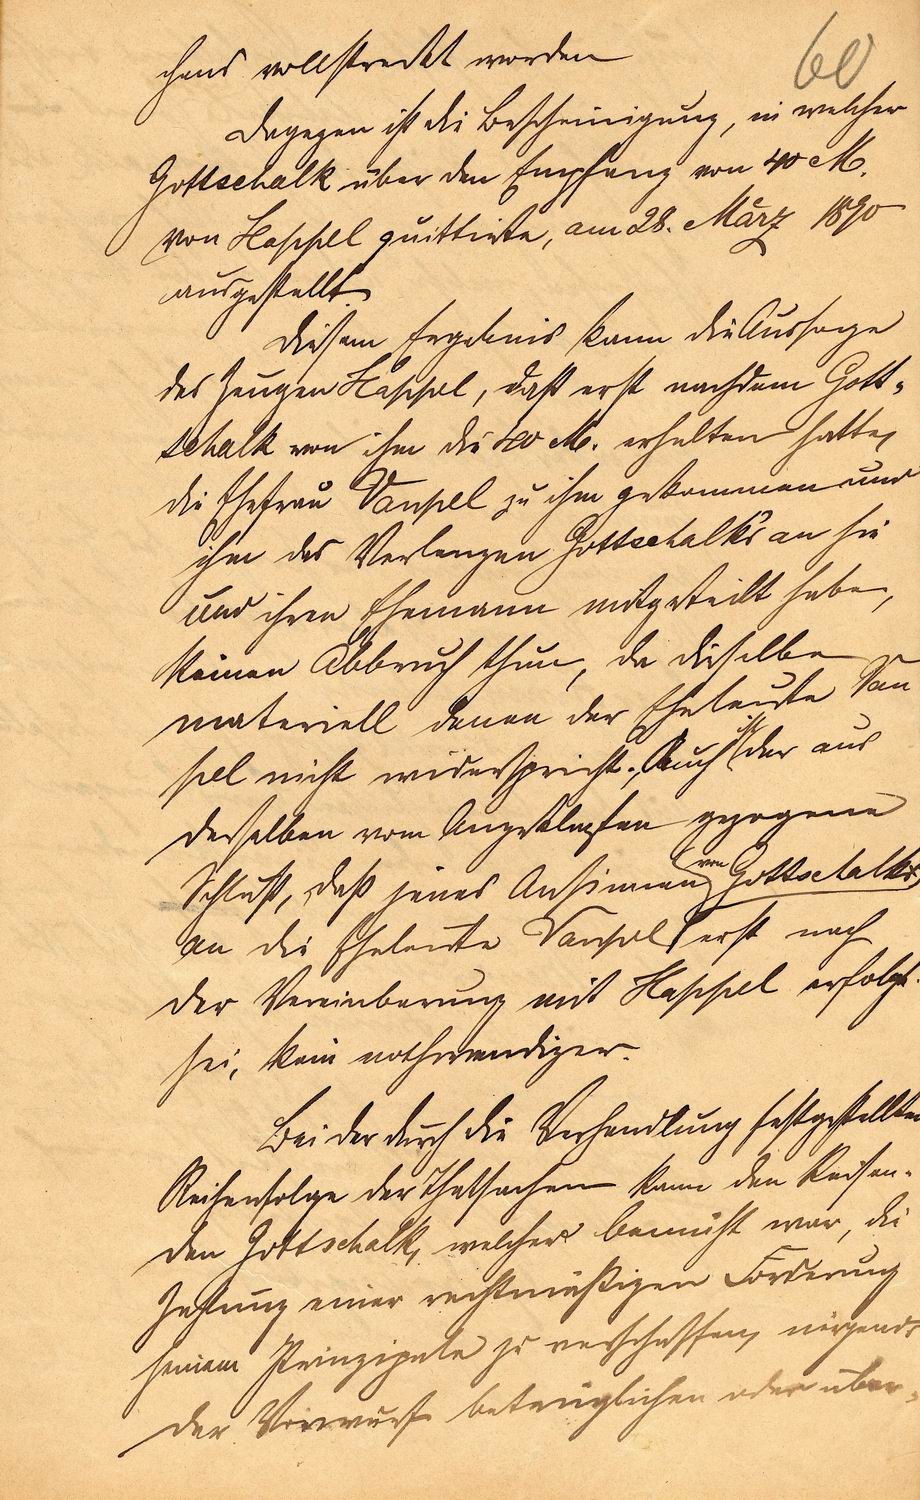 60
chens vollstreckt worden
Dagegen ist die Bescheinigung, in welcher
Gottschalk über den Empfang von 40 M.
von Hassel quittirte, am 28. März 1890
ausgestellt.
Diesem Ergebnis kann die Aussage
des Zeugen Hassel, daß erst nachdem Gott-
schalk von ihm die 40 M. erhalten hatte,
die Ehefrau Vansel zu ihm gekommen und
ihm das Verlangen Gottschalk's an sie
und ihren Ehemann mitgeteilt habe,
keinen Abbruch thun, da dieselbe
materiell denen der Eheleute Van
sel nicht widerspricht. Auch ist der aus
derselben vom Angeklagten gezogene
Schluß, daß jenes Ansinnen von Gottschalk's
an die Eheleute Vansel erst nach
der Vereinbarung mit Hassel erfolgt
sei, kein nothwendiger.
Bei der durch die Verhandlung festgestellten
Reihenfolge der Thatsachen kann den Reisen-
den Gottschalk, welcher bemüht war, die
Zahlung einer rechtmäßigen Forderung
seinem Prinzipale zu verschaffen, nirgends
der Vorwurf betrüglichen oder über-